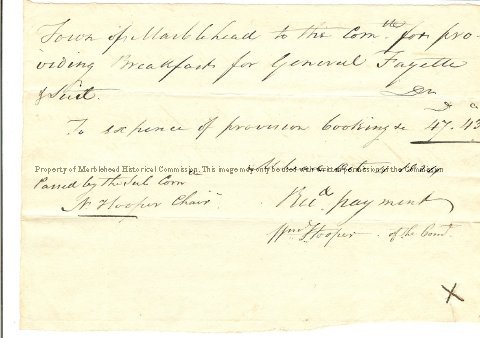 Town of Marblehead to the Com.tte for pro-
viding Breakfast for General Fayette
& Suit. Dr
To expence of provision Cooking &c 47.43
Property of Marblehead Historical Commission. This image may only be used with written permission of the Commission
Passed by the Sub Com
N Hooper Chair Rec.d payment
Wm Hooper of the Com.
X